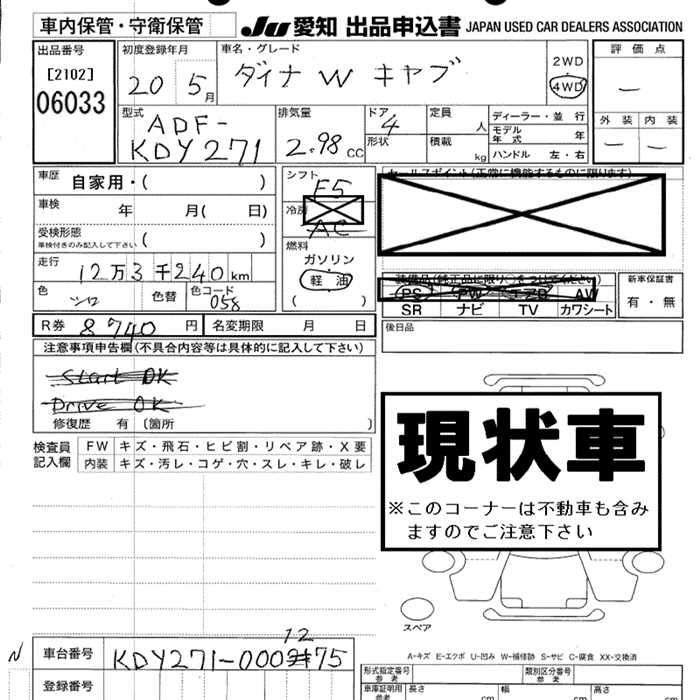 車内保管・守衛保管 JU 愛知 出品申込書 JAPAN USED CAR DEALERS ASSOCIATION
出品番号 初度登録年月 車名・グレード 評価点
[2102] 20 5月 ダイナ W キャブ 2WD
06033 4WD
型式 排気量 ドア 定員 ディーラー・並行 外装 内装
ADF- 4 人 モデル年式
KDY271 2.98 CC 形状 積載 kg ハンドル 左・右
車歴 自家用・( ) シフト F5 セールスポイント(正常に機能するものに限ります)
車検 年 月( 日) 冷房 AC
受検形態 ( )
車検付きのみ記入して下さい
燃料
走行 12万3千240km ガソリン 装備品(純正品に限り○をつけてください) 新車保証書
軽油 PS PW AW 有・無
色 シロ 色替 色コード 058 ( ) SR ナビ TV カワシート
R券 8740円 名変期限 月 日 後日品
注意事項申告欄(不具合内容等は具体的に記入して下さい)
Start OK
Drive OK
修復歴 有 〔箇所 〕
現状車
※このコーナーは不動車も含み
ますのでご注意下さい
検査員 FW キズ・飛石・ヒビ割・リペア跡・X要
記入欄 内装 キズ・汚レ・コゲ・穴・スレ・キレ・破レ
スペア
A-キズ E-エクボ U-凹み W-補修跡 S-サビ C-腐食 XX-交換済
N 車台番号 KDY271-0001275
登録番号
形式指定番号 類別区分番号
車庫証明用 長さ cm 幅 cm 高さ cm